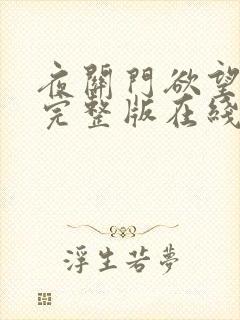 夜關門欲望
完整版在綫
浮生若夢